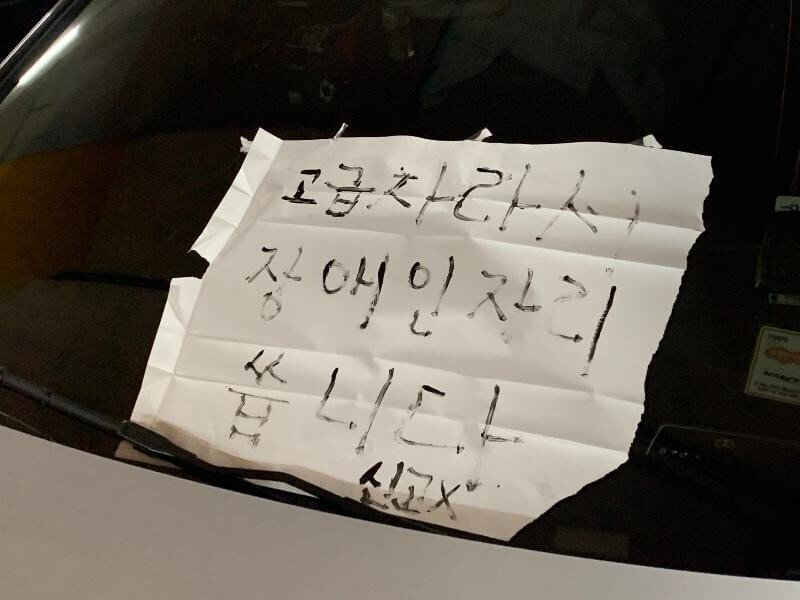 고급차라서
장애인자리
씁니다
신고X